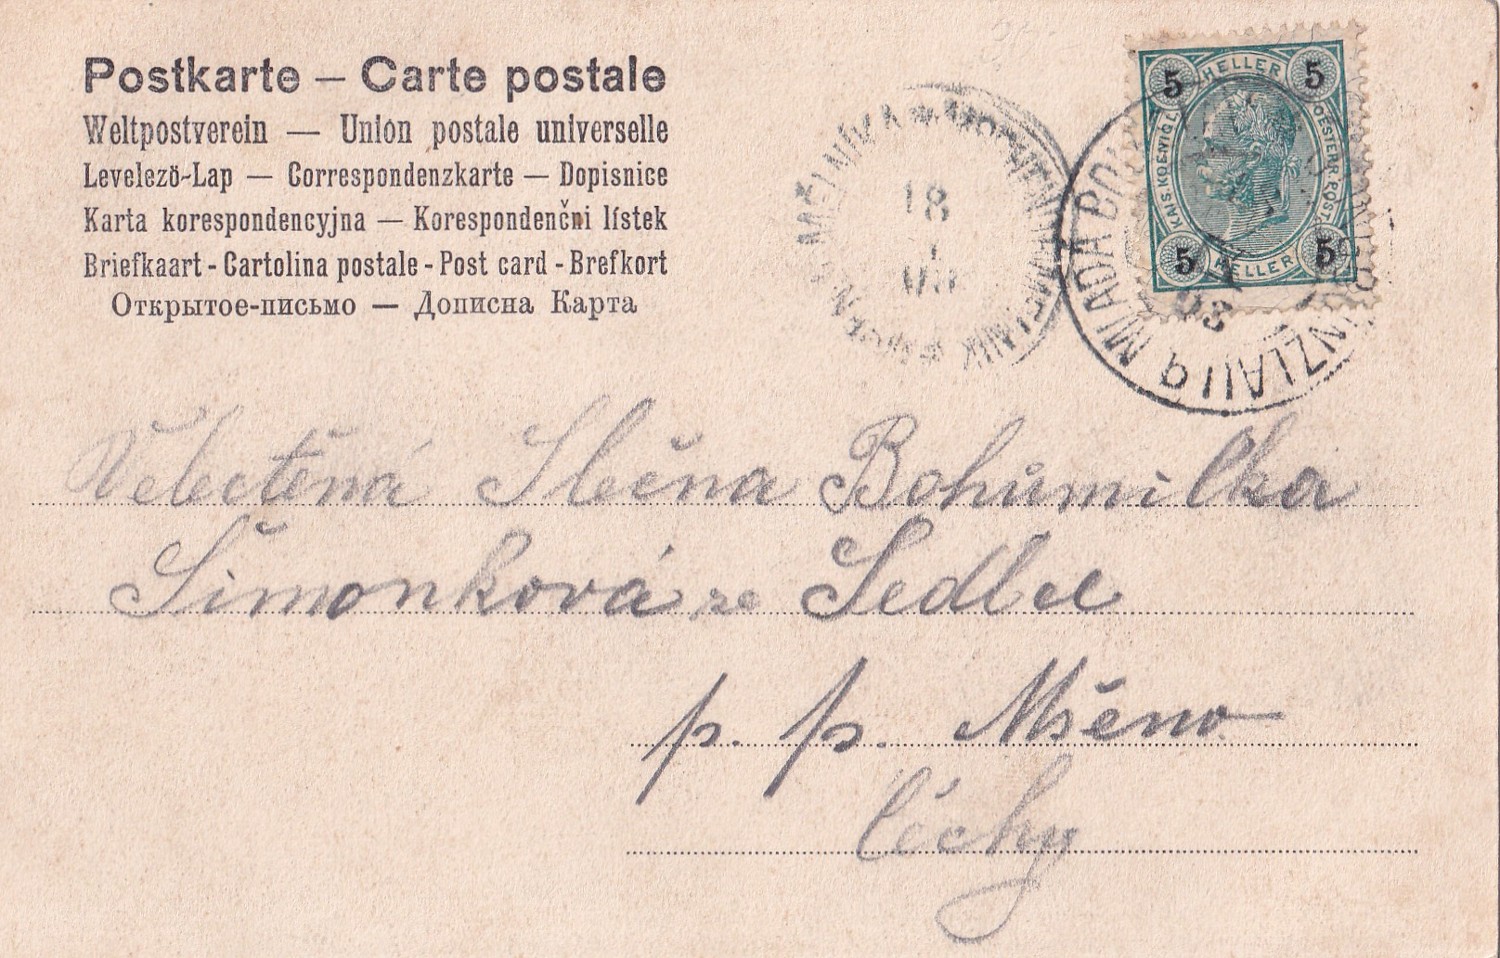 Postkarte — Carte postale
Weltpostverein — Union postale universelle
Levelező-Lap — Correspondenzkarte — Dopisnice
Karta korespondencyjna — Korespondenčni lístek
Briefkaart - Cartolina postale - Post card - Brefkort
Открытое-письмо — Дописна Карта
5 HELLER 5
KAIS. KOENIGL. OESTERR. POST
5 HELLER 5
MĚLNÍKA
18
MLADÁ
03
Velectěná Slečna Bohůmilka
Šimonková ze Sedlec
p. p. Mšeno
Čechy